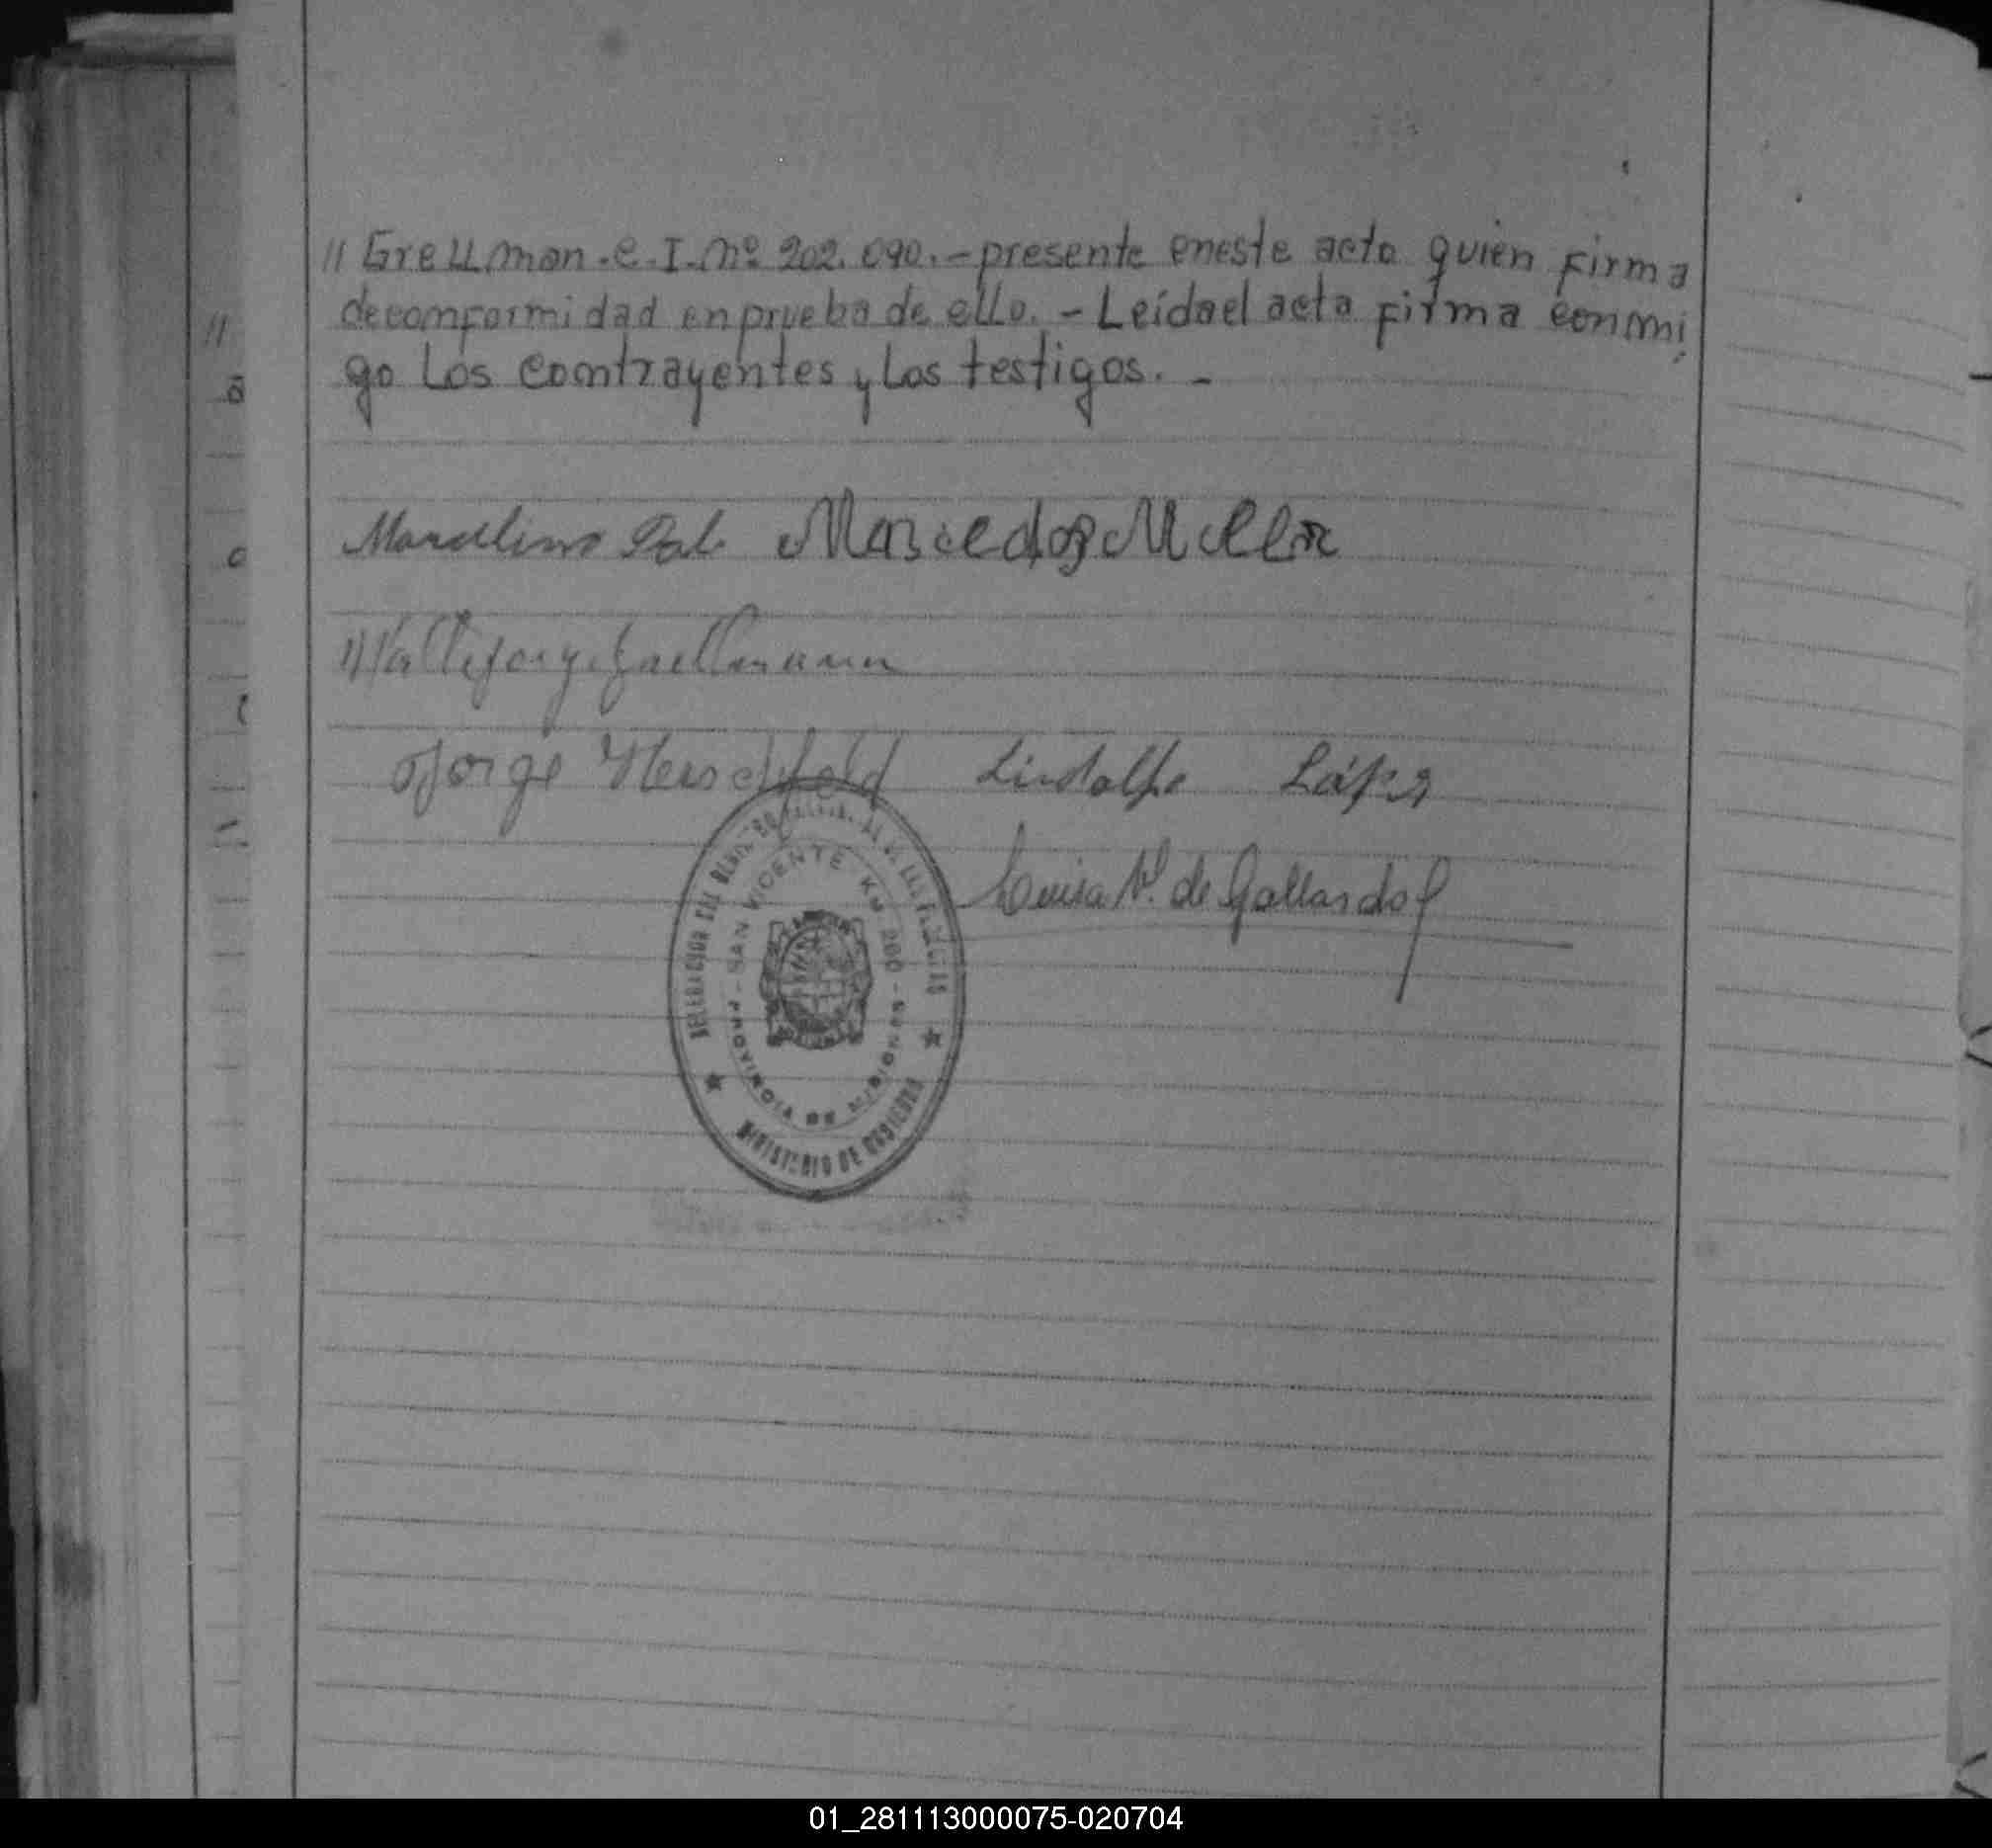 // Grellman.C.I.Nº 202.090.- presente eneste acto quien firma
deconformidad enprueba de ello. - Leídael acta firma conmi
go Los contrayentes y Los testigos. -
Marcelino
Jorge Herschfeld Lindolfo López
Luisa N. de Gallardo
DELEGACION DEL REGISTRO DE LAS PERSONAS
- SAN VICENTE KM 260 -
PROVINCIA DE MISIONES
★ MINISTERIO DE GOBIERNO ★
01_281113000075-020704